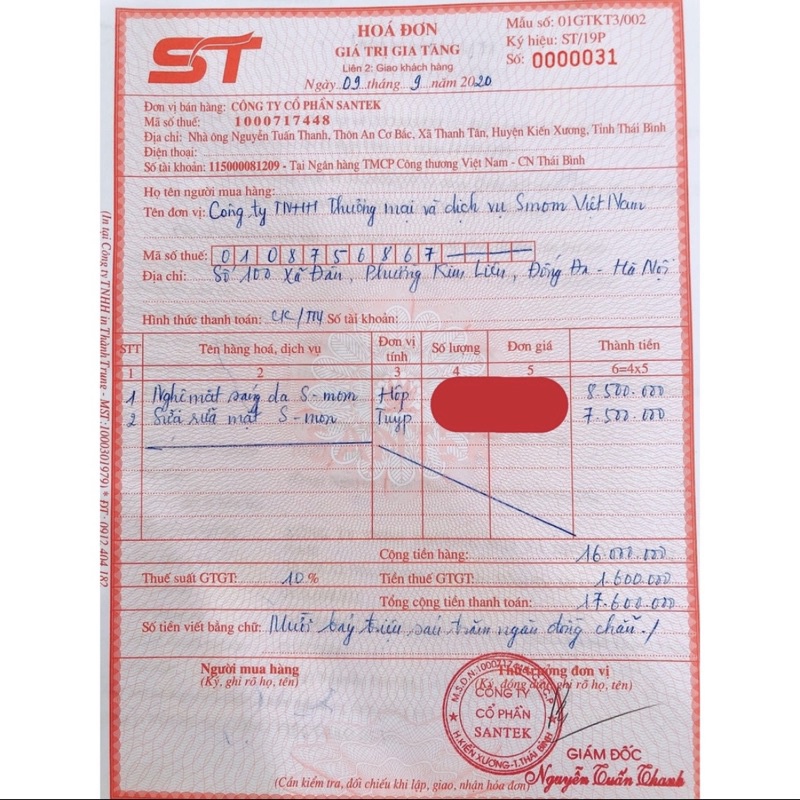 ST
HOÁ ĐƠN
GIÁ TRỊ GIA TĂNG
Liên 2: Giao khách hàng
Ngày 09 tháng 9 năm 2020
Mẫu số: 01GTKT3/002
Ký hiệu: ST/19P
Số: 0000031
Đơn vị bán hàng: CÔNG TY CỔ PHẦN SANTEK
Mã số thuế: 1000717448
Địa chỉ: Nhà ông Nguyễn Tuấn Thanh, Thôn An Cơ Bắc, Xã Thanh Tân, Huyện Kiến Xương, Tỉnh Thái Bình
Điện thoại:
Số tài khoản: 115000081209 - Tại Ngân hàng TMCP Công thương Việt Nam - CN Thái Bình
Họ tên người mua hàng:
Tên đơn vị: Công ty TNHH Thương mại và dịch vụ Smom Việt Nam
Mã số thuế: 0108756867
Địa chỉ: Số 100 Xã Đàn, Phường Kim Liên, Đống Đa - Hà Nội
Hình thức thanh toán: CK/TM Số tài khoản:
STT Tên hàng hoá, dịch vụ Đơn vị tính Số lượng Đơn giá Thành tiền
1 2 3 4 5 6=4x5
1 Nghệ mát sáng da S-mom Hộp 8.500.000
2 Sữa rửa mặt S-mom Tuýp 7.500.000
Cộng tiền hàng: 16.000.000
Thuế suất GTGT: 10% Tiền thuế GTGT: 1.600.000
Tổng cộng tiền thanh toán: 17.600.000
Số tiền viết bằng chữ: Mười bảy triệu sáu trăm ngàn đồng chẵn./
Người mua hàng
(Ký, ghi rõ họ, tên)
Thủ trưởng đơn vị
(Ký, đóng dấu, ghi rõ họ, tên)
CÔNG TY
CỔ PHẦN
SANTEK
H.KIẾN XƯƠNG-T.THÁI BÌNH
GIÁM ĐỐC
Nguyễn Tuấn Thanh
(Cần kiểm tra, đối chiếu khi lập, giao, nhận hóa đơn)
(In tại Công ty TNHH in Thành Trung - MST: 1000301979) * ĐT: 0912 404 182